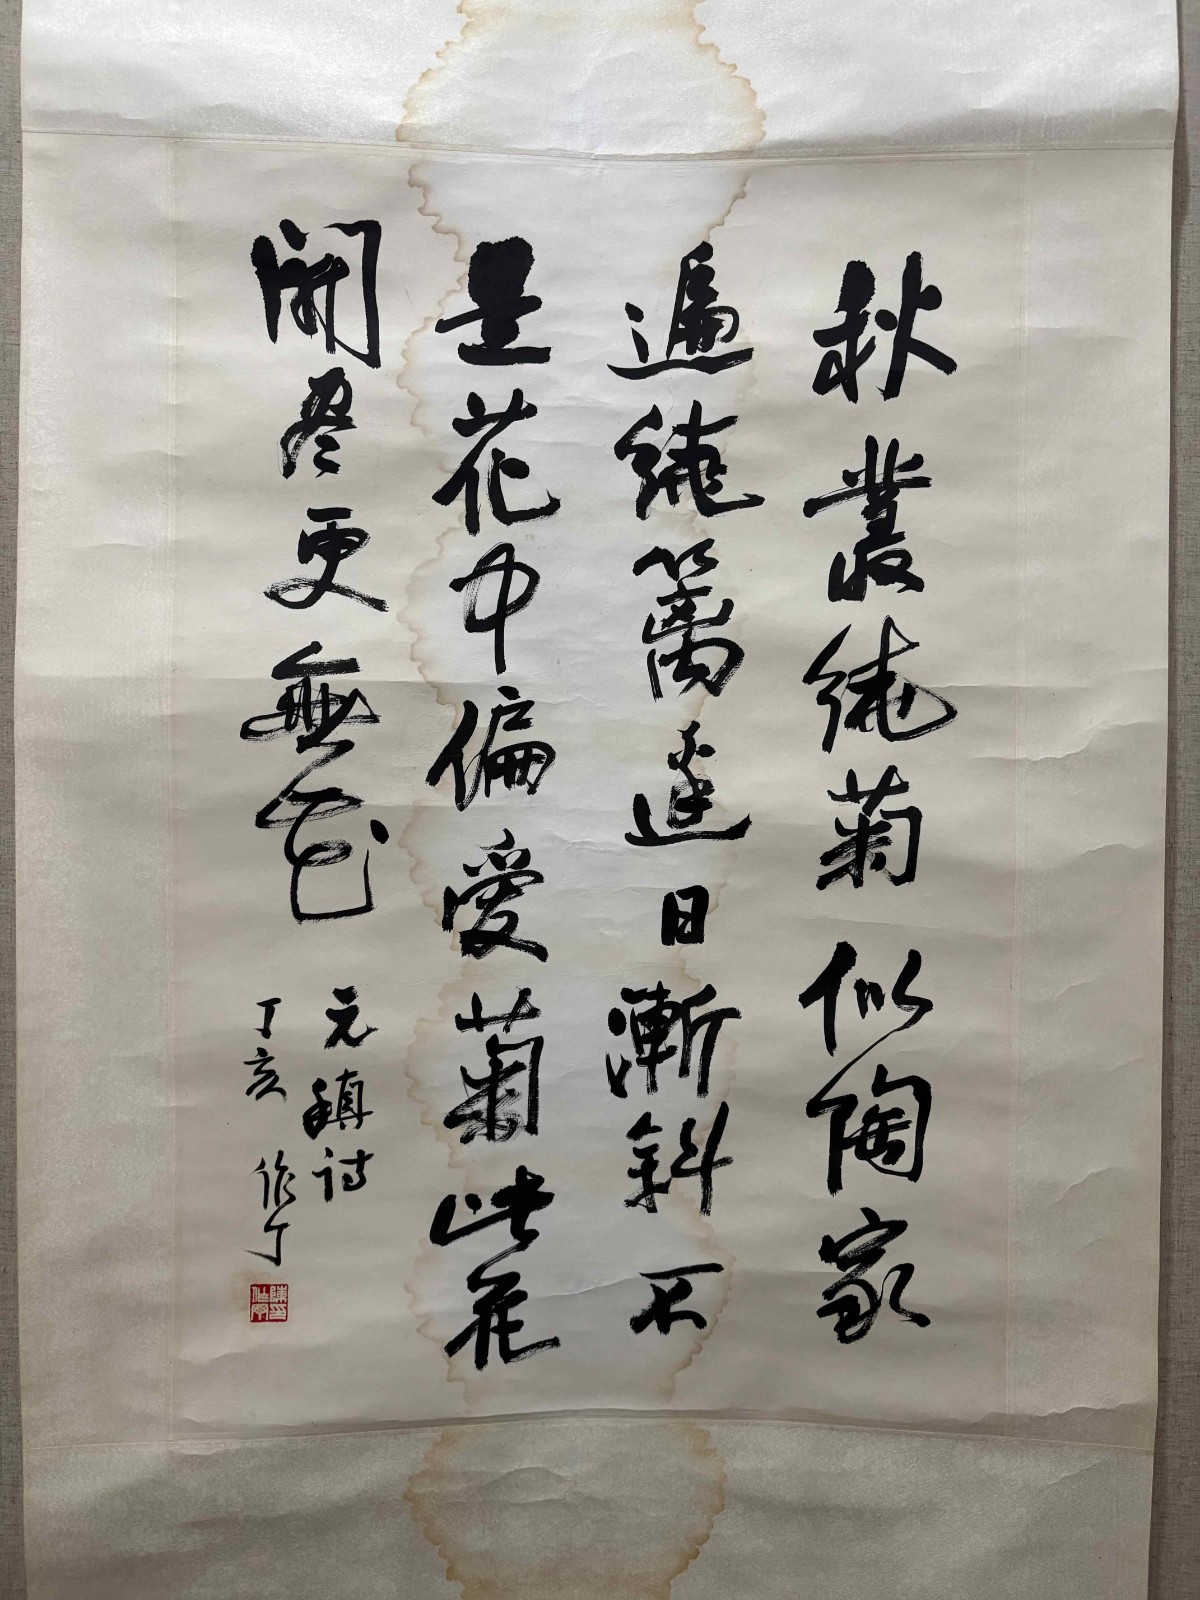 秋叢繞菊似陶家
遍繞籬邊日漸斜不
是花中偏愛菊此花
開尽更無花
元稹詩
丁亥